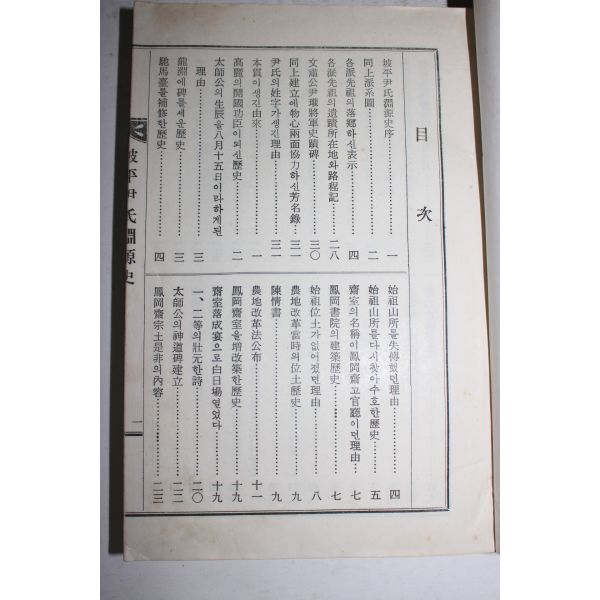 目次
坡平尹氏淵源史序……一
同上派系圖……二
各派先祖의落鄕하신表示……四
各派先祖의遺蹟所在地와路程記……二八
文肅公尹瓘將軍史蹟碑……三〇
同上建立에物心兩面協力하신芳名錄……三一
尹氏의姓字가생긴理由……三一
本貫이생긴由來……一
高麗의開國功臣이되신歷史……二
太師公의生辰을八月十五日이라하게된
理由……三
龍淵에碑를세운歷史……三
馳馬臺를補修한歷史……四
始祖山所를失傳했던理由……四
始祖山所를다시찾아수호한歷史……五
齋室의名稱이鳳岡齋고官廳이던理由……七
鳳岡書院의建築歷史……七
始祖位土가없어젔던理由……八
農地改革當時의位土歷史……九
陳情書……九
農地改革法公布……十一
鳳岡齋室을增改築한歷史……十九
齋室落成宴으로白日場열었다……十九
一、二等의壯元한詩……二〇
太師公의神道碑建立……二二
鳳岡齋宗土是非의內容……二三
坡平尹氏淵源史
一